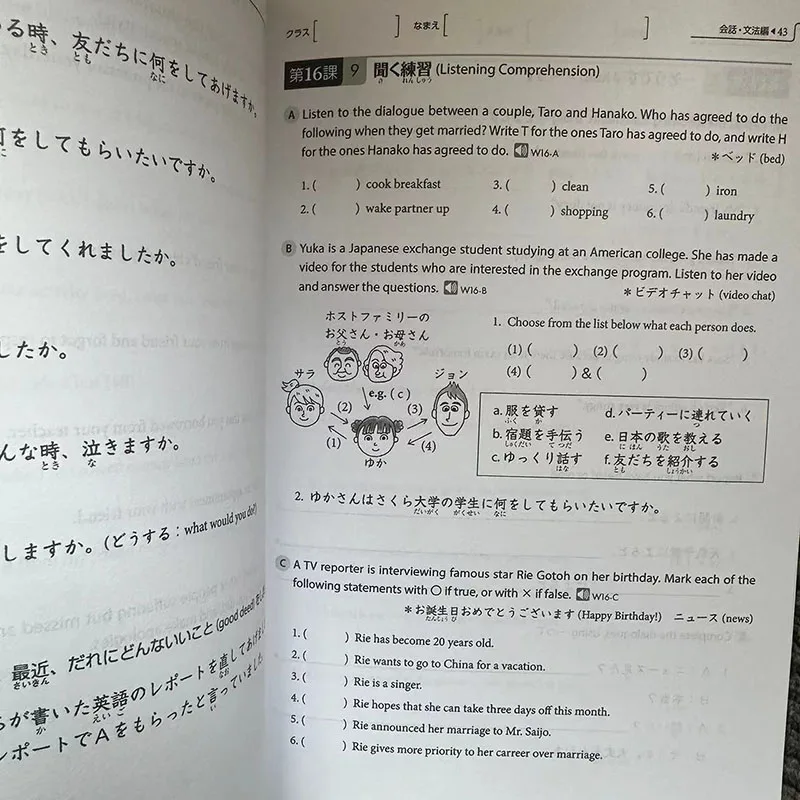 る時、友だちに何をしてあげますか。
とき とも なに
をしてもらいたいですか。
をしてくれましたか。
したか。
んな時、泣きますか。
とき な
しますか。(どうする：what would you do?)
最近、だれにどんないいこと (good deed) を
さいきん
が書いた英語のレポートを直してあげま
か えいご なお
ポートでAをもらったと言っていました
い
クラス[ ] なまえ[ ] 会話・文法編◀43
第16課 9 聞く練習 (Listening Comprehension)
き れんしゅう
A Listen to the dialogue between a couple, Taro and Hanako. Who has agreed to do the
following when they get married? Write T for the ones Taro has agreed to do, and write H
for the ones Hanako has agreed to do. W16-A
＊ベッド (bed)
1. ( ) cook breakfast 3. ( ) clean 5. ( ) iron
2. ( ) wake partner up 4. ( ) shopping 6. ( ) laundry
B Yuka is a Japanese exchange student studying at an American college. She has made a
video for the students who are interested in the exchange program. Listen to her video
and answer the questions. W16-B
＊ビデオチャット (video chat)
ホストファミリーの
お父さん・お母さん
とう かあ
サラ
ジョン
e.g. ( c )
(2)
(3)
(1)
(4)
ゆか
1. Choose from the list below what each person does.
(1) ( ) (2) ( ) (3) ( )
(4) ( ) & ( )
a. 服を貸す d. パーティーに連れていく
ふく か つ
b. 宿題を手伝う e. 日本の歌を教える
しゅくだい てつだ にほん うた おし
c. ゆっくり話す f. 友だちを紹介する
はな とも しょうかい
2. ゆかさんはさくら大学の学生に何をしてもらいたいですか。
だいがく がくせい なに
C A TV reporter is interviewing famous star Rie Gotoh on her birthday. Mark each of the
following statements with ○ if true, or with × if false. W16-C
＊お誕生日おめでとうございます (Happy Birthday!) ニュース (news)
たんじょうび
1. ( ) Rie has become 20 years old.
2. ( ) Rie wants to go to China for a vacation.
3. ( ) Rie is a singer.
4. ( ) Rie hopes that she can take three days off this month.
5. ( ) Rie announced her marriage to Mr. Saijo.
6. ( ) Rie gives more priority to her carreer over marriage.